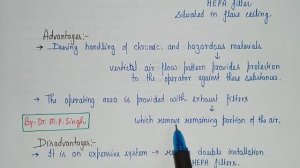 HEPA filter
situated in flass ceiling.
Advantages:-
→ During handling of chronic and hazardous materials
↓
vertical air flow pattern provides protection
to the operator against these substances.
→ The operating area is provided with exhaust filters
↓
which remove remaining portion of the air.
By-Dr. M.P. Singh
Disadvantages:-
→ It is an expensive system → double installation
HEPA filters.